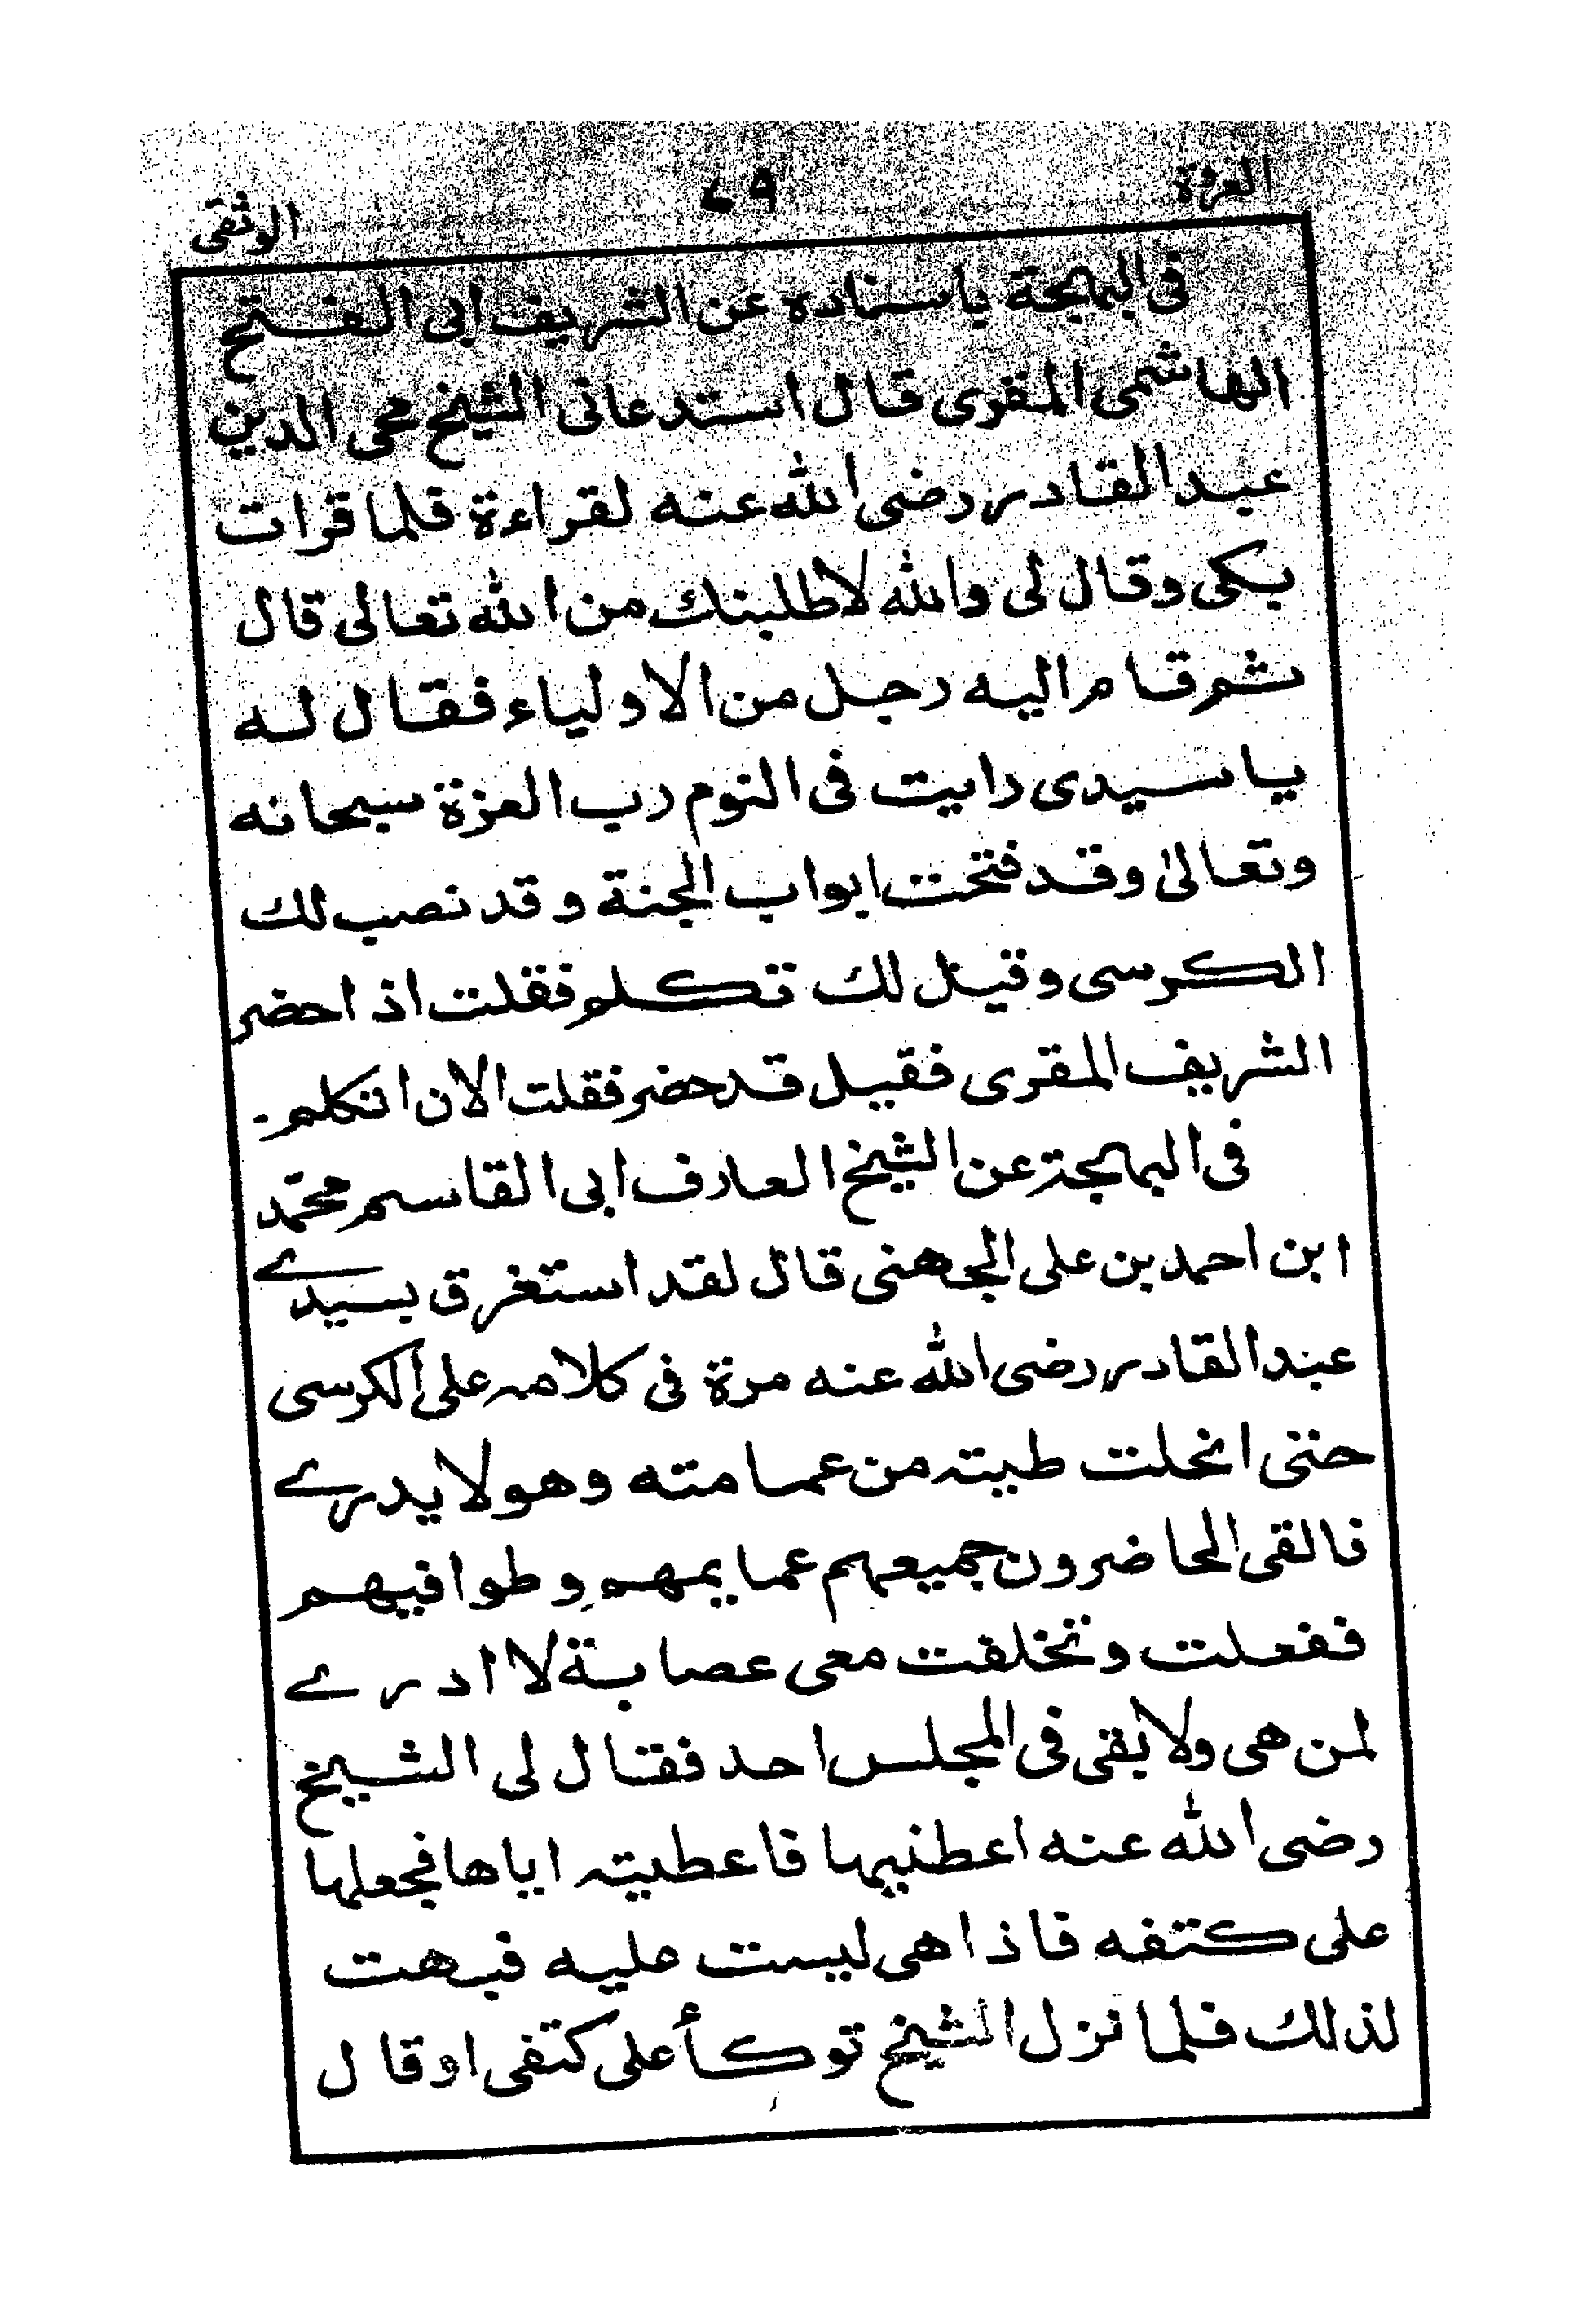 العروة
٤٩
الوثقى
فى البهجة باسناده عن الشريف ابى الفتح
الهاشمى المقرى قال استدعانى الشيخ محى الدين
عبد القادر رضى الله عنه لقراءة فلما قرات
بكى وقال لى والله لاطلبنك من الله تعالى قال
ثم قام اليه رجل من الاولياء فقال له
يا سيدى رايت فى النوم رب العزة سبحانه
وتعالىٰ وقد فتحت ابواب الجنة و قد نصب لك
الكرسى وقيل لك تكلم فقلت اذ احضر
الشريف المقرى فقيل قد حضر فقلت الان اتكلم -
فى البهجة عن الشيخ العارف ابى القاسم محمّد
ابن احمد بن على الجهنى قال لقد استغرق بسيدے
عبد القادر رضى الله عنه مرة فى كلامه على الكرسى
حتى انحلت طيته من عمامته وهو لا يدرے
فالقى الحاضرون جميعهم عمايمهم و طوا فيهم
ففعلت وتخلفت معى عصابة لا ادرے
لمن هى ولا بقى فى المجلس احد فقال لى الشيخ
رضى الله عنه اعطنيها فاعطيته اياها فجعلها
على كتفه فاذا هى ليست عليه فبهت
لذلك فلما نزل الشيخ توكأ على كتفى او قال